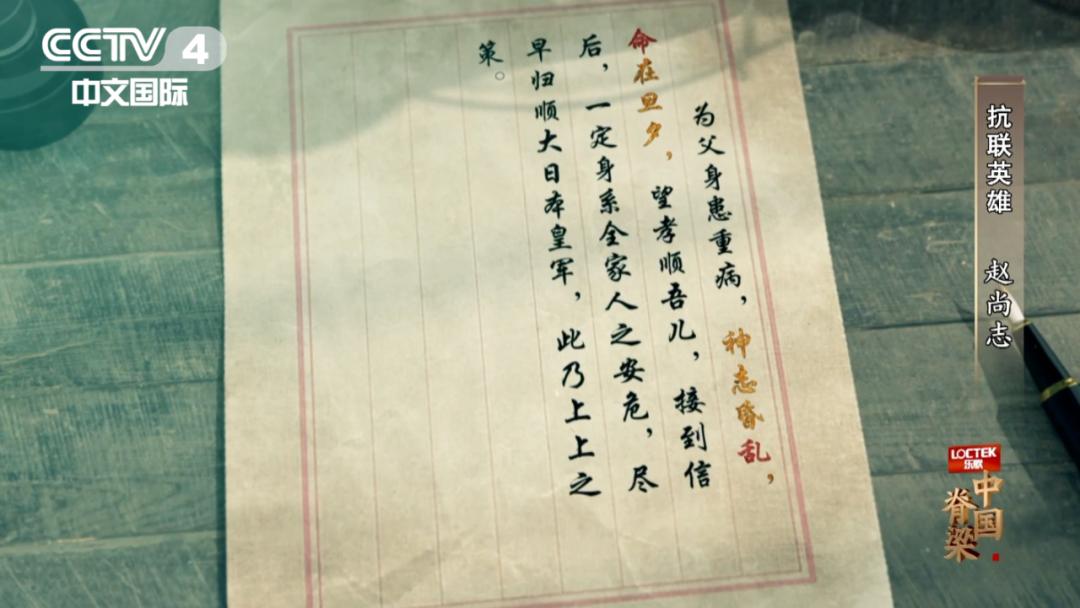 CCTV 4
中文国际
为父身患重病，神志昏乱，
命在旦夕，望孝顺吾儿，接到信
后，一定身系全家人之安危，尽
早归顺大日本皇军，此乃上上之
策。
抗联英雄 赵尚志
LOCTEK
乐歌
中国
脊梁